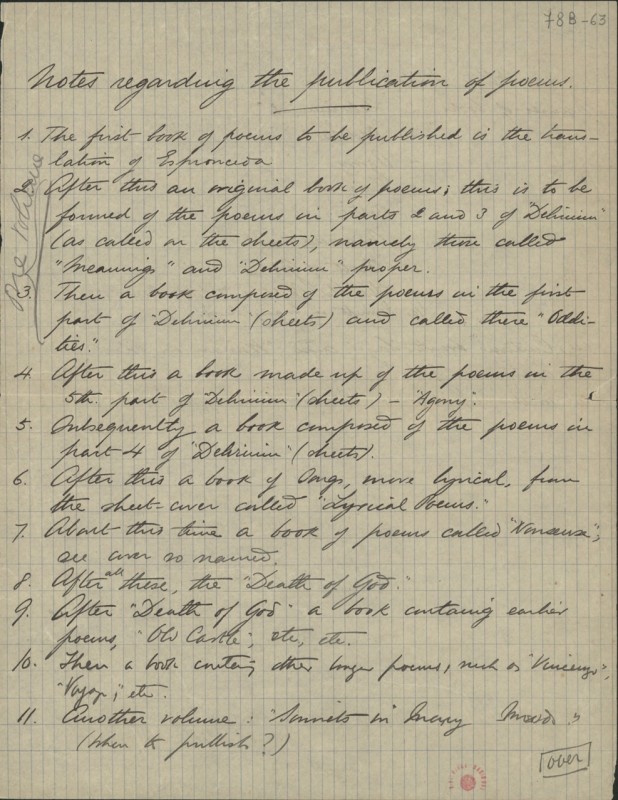 78B-63
Notes regarding the publication of poems.
1. The first book of poems to be published is the trans-
lation of Espronceda
2. After this an original book of poems; this is to be
formed of the poems in parts 2 and 3 of "Delirium"
(as called on the sheets), namely those called
"Meanings" and "Delirium" proper.
3. Then a book composed of the poems in the first
part of "Delirium" (sheets) and called there "Oddi-
ties."
4. After this a book made up of the poems in the
5th. part of "Delirium" (sheets) – "Agony".
5. Subsequently a book composed of the poems in
part 4 of "Delirium" (sheets).
6. After this a book of songs, more lyrical, from
the sheet-cover called "Lyrical Poems."
7. About this time a book of poems called "Nonsense";
see cover so named.
8. After all these, the "Death of God".
9. After "Death of God" a book containing earlier
poems, "Old Castle", etc, etc.
10. Then a book containing other longer poems, such as "Vincenzo",
"Voyage", etc.
11. Another volume: "Sonnets in Many Moods."
(when to publish?)
over